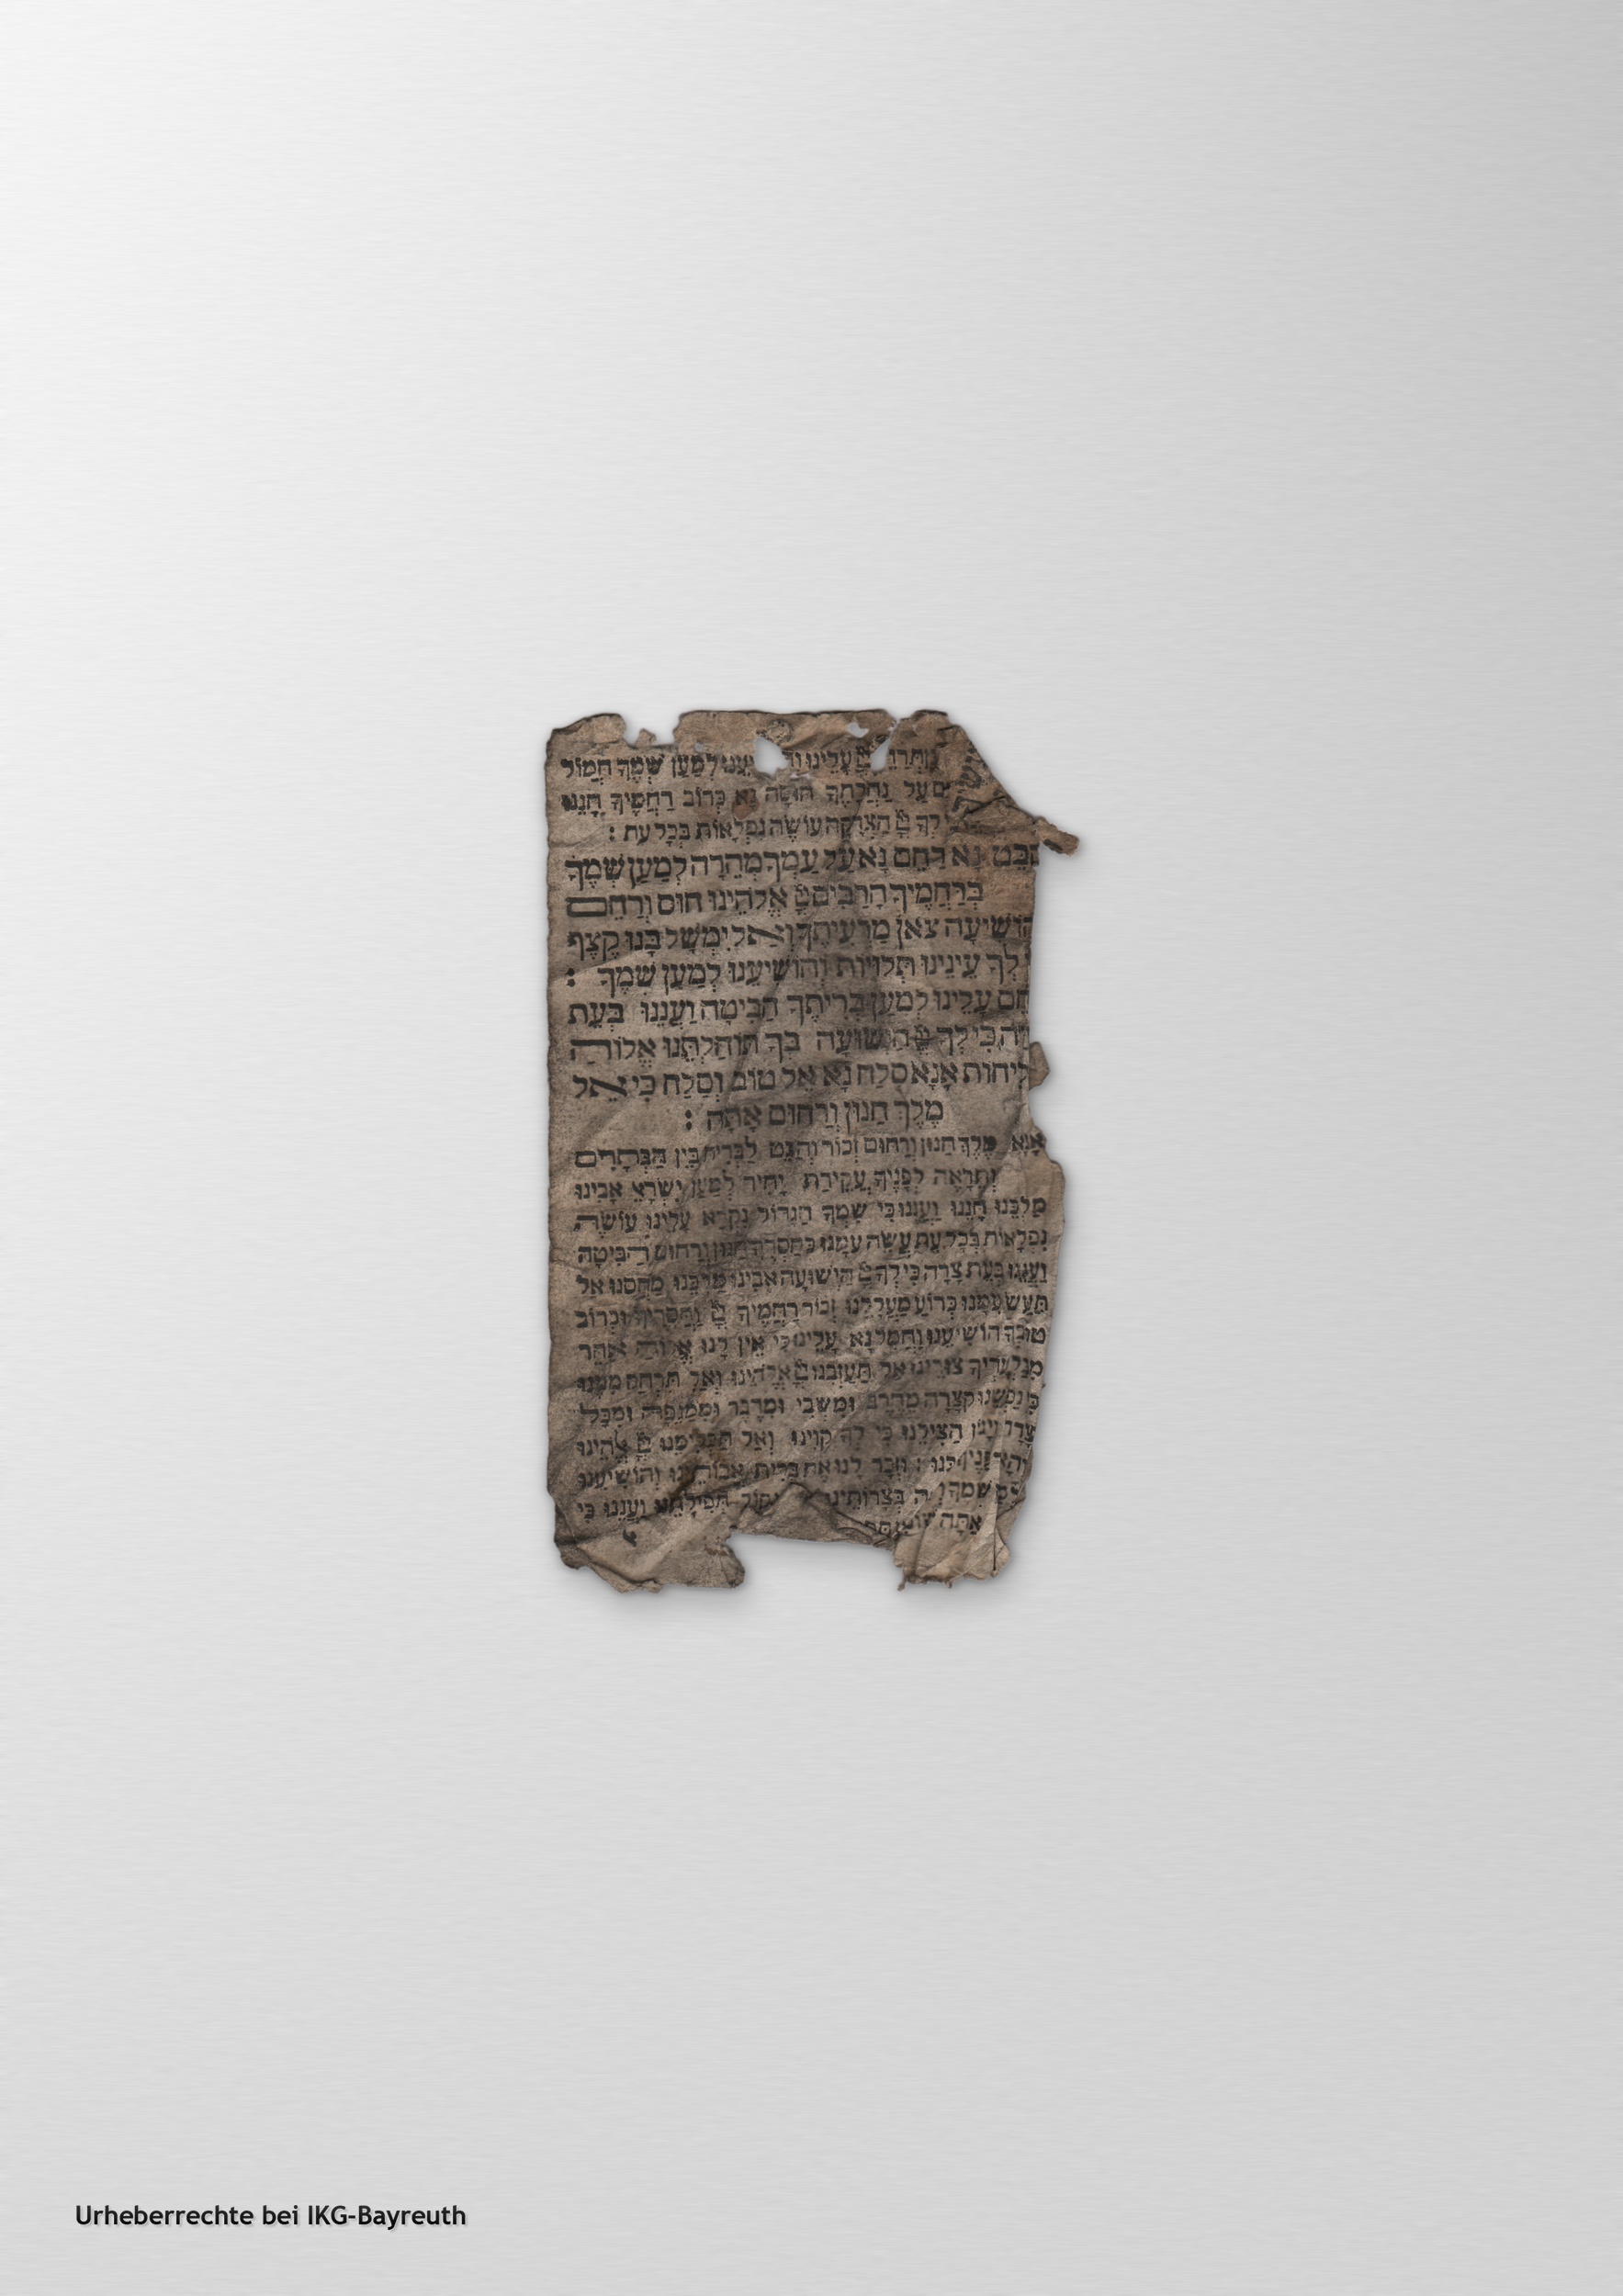 עָלֵינוּ לְמַעַן שְׁמֶךָ חֲמוֹל
עַל נַחֲלָתֶךָ חוּסָה נָא כְּרוֹב רַחֲמֶיךָ חָנֵּנוּ
הַצְדָקָה עוֹשֶׂה נִפְלָאוֹת בְּכָל עֵת :
הַבֶּט נָא רַחֶם נָא עַל עַמְךָ מְהֵרָה לְמַעַן שְׁמֶךָ
בְּרַחֲמֶיךָ הָרַבִּים יְיָ אֱלֹהֵינוּ חוּס וְרַחֵם
הוֹשִׁיעָה צֹאן מַרְעִיתֶךָ וְאַל יִמְשָׁל בָּנוּ קֶצֶף
לְךָ עֵינֵינוּ תְּלוּיוֹת וְהוֹשִׁיעֵנוּ לְמַעַן שְׁמֶךָ :
עָלֵינוּ לְמַעַן בְּרִיתֶךָ הַבִּיטָה וַעֲנֵנוּ בְּעֵת
כִּי לְךָ יְיָ הַיְשׁוּעָה בְּךָ תּוֹחַלְתֵּנוּ אֱלוֹהַּ
סְלִיחוֹת אָנָּא סְלַח נָא אֵל טוֹב וְסַלָּח כִּי אֵל
מֶלֶךְ חַנּוּן וְרַחוּם אָתָּה :
אָנָּא מֶלֶךְ חַנּוּן וְרַחוּם זְכוֹר וְהַבֵּט לִבְרִית בֵּין הַבְּתָרִים
וְתֵרָאֶה לְפָנֶיךָ עֲקֵידַת יָחִיד לְמַעַן יִשְׂרָאֵ אָבִינוּ
מַלְכֵּנוּ חָנֵּנוּ וַעֲנֵנוּ כִּי שִׁמְךָ הַגָּדוֹל נִקְרָא עָלֵינוּ עוֹשֶׂה
נִפְלָאוֹת בְּכָל עֵת עֲשֵׂה עִמָּנוּ כְּחַסְדֶּךָ חַנּוּן וְרַחוּם הַבִּיטָה
וַעֲנֵנוּ בְּעֵת צָרָה כִּי לְךָ יְיָ הַיְשׁוּעָה אָבִינוּ מַלְכֵּנוּ מַחֲסֵנוּ אַל
תַּעַשׂ עִמָּנוּ כְּרוֹעַ מַעֲלָלֵינוּ זְכוֹר רַחֲמֶיךָ יְיָ וַחֲסָדֶיךָ וּכְרוֹב
טוּבְךָ הוֹשִׁיעֵנוּ וַחֲמָל נָא עָלֵינוּ כִּי אֵין לָנוּ אֱלוֹהַּ אַחֵר
מִבַּלְעָדֶיךָ צוּרֵינוּ אַל תַּעַזְבֵנוּ יְיָ אֱלֹהֵינוּ וְאַל תִּרְחַק מִמֶּנּוּ
נַפְשֵׁנוּ קְצָרָה מֵחֶרֶב וּמִשְּׁבִי וּמִדֶּבֶר וּמִמַּגֵּפָה וּמִכָּל
צָרָה וְיָגוֹן הַצִּילֵנוּ כִּי לְךָ קִוִּינוּ וְאַל תַּכְלִימֵנוּ יְיָ אֱלֹהֵינוּ
וּזְכָר לָנוּ אֶת בְּרִית אֲבוֹתֵינוּ וְהוֹשִׁיעֵנוּ
שְׁמֶךָ בְּצָרוֹתֵינוּ תְּפִילָתֵנוּ וַעֲנֵנוּ כִּי
אַתָּה
Urheberrechte bei IKG-Bayreuth